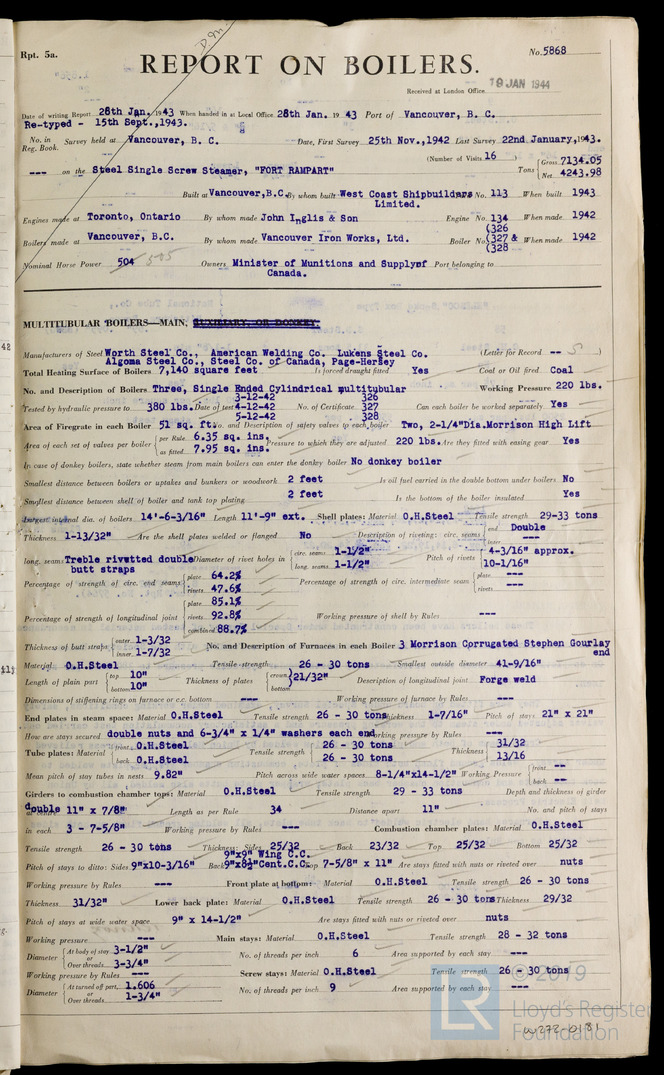 Rpt. 5a.
D.M.
No. 5868
REPORT ON BOILERS.
Received at London Office 19 JAN 1944
Date of writing Report 28th Jan. 1943 When handed in at Local Office 28th Jan. 19 43 Port of Vancouver, B. C.
Re-typed - 15th Sept.,1943.
No. in Reg. Book. Survey held at Vancouver, B. C. Date, First Survey 25th Nov.,1942 Last Survey 22nd January,1943.
(Number of Visits 16 )
--- on the Steel Single Screw Steamer, "FORT RAMPART" Tons { Gross 7134.05 Net 4243.98
Built at Vancouver,B.C. By whom built West Coast Shipbuilders Limited. Yard No. 113 When built 1943
Engines made at Toronto, Ontario By whom made John Inglis & Son Engine No. 134 When made 1942
Boilers made at Vancouver, B.C. By whom made Vancouver Iron Works, Ltd. Boiler No. (326 (327 & (328 When made 1942
Nominal Horse Power 504 505 Owners Minister of Munitions and Supply of Canada. Port belonging to
MULTITUBULAR BOILERS—MAIN,
42
Manufacturers of Steel Worth Steel Co., American Welding Co. Lukens Steel Co. (Letter for Record -- S )
Algoma Steel Co., Steel Co. of Canada, Page-Hersey
Total Heating Surface of Boilers 7,140 square feet Is forced draught fitted Yes Coal or Oil fired Coal
No. and Description of Boilers Three, Single Ended Cylindrical multitubular Working Pressure 220 lbs.
Tested by hydraulic pressure to 380 lbs. Date of test 3-12-42 4-12-42 5-12-42 No. of Certificate 326 327 328 Can each boiler be worked separately Yes
Area of Firegrate in each Boiler 51 sq. ft. No. and Description of safety valves to each boiler Two, 2-1/4"Dia.Morrison High Lift
Area of each set of valves per boiler { per Rule 6.35 sq. ins. as fitted 7.95 sq. ins. Pressure to which they are adjusted 220 lbs. Are they fitted with easing gear Yes
In case of donkey boilers, state whether steam from main boilers can enter the donkey boiler No donkey boiler
Smallest distance between boilers or uptakes and bunkers or woodwork 2 feet Is oil fuel carried in the double bottom under boilers No
Smallest distance between shell of boiler and tank top plating 2 feet Is the bottom of the boiler insulated Yes
Largest internal dia. of boilers 14'-6-3/16" Length 11'-9" ext. Shell plates: Material O.H.Steel Tensile strength 29-33 tons
Thickness 1-13/32" Are the shell plates welded or flanged No Description of riveting: circ. seams { end Double inter.
long. seams Treble rivetted double butt straps Diameter of rivet holes in { circ. seams 1-1/2" long. seams 1-1/2" Pitch of rivets { 4-3/16" approx. 10-1/16"
Percentage of strength of circ. end seams { plate 64.2% rivets 47.6% Percentage of strength of circ. intermediate seam { plate --- rivets ---
Percentage of strength of longitudinal joint { plate 85.1% rivets 92.8% combined 88.7% Working pressure of shell by Rules ---
Thickness of butt straps { outer 1-3/32 inner 1-7/32 No. and Description of Furnaces in each Boiler 3 Morrison Corrugated Stephen Gourlay end
Material O.H.Steel Tensile strength 26 - 30 tons Smallest outside diameter 41-9/16"
Length of plain part { top 10" bottom 10" Thickness of plates { crown bottom } 21/32" Description of longitudinal joint Forge weld
Dimensions of stiffening rings on furnace or c.c. bottom --- Working pressure of furnace by Rules ---
End plates in steam space: Material O.H.Steel Tensile strength 26 - 30 tons Thickness 1-7/16" Pitch of stays 21" x 21"
How are stays secured double nuts and 6-3/4" x 1/4" washers each end Working pressure by Rules ---
Tube plates: Material { front O.H.Steel back O.H.Steel Tensile strength { 26 - 30 tons 26 - 30 tons Thickness { 31/32 13/16
Mean pitch of stay tubes in nests 9.82" Pitch across wide water spaces 8-1/4"x14-1/2" Working Pressure { front -- back --
Girders to combustion chamber tops: Material O.H.Steel Tensile strength 29 - 33 tons Depth and thickness of girder
at centre double 11" x 7/8" Length as per Rule 34 Distance apart 11" No. and pitch of stays
in each 3 - 7-5/8" Working pressure by Rules --- Combustion chamber plates: Material O.H.Steel
Tensile strength 26 - 30 tons Thickness: Sides 25/32 Back 23/32 Top 25/32 Bottom 25/32
Pitch of stays to ditto: Sides 9"x10-3/16" Back 9"x9" Wing C.C. 9"x8½"Cent.C.C. Top 7-5/8" x 11" Are stays fitted with nuts or riveted over nuts
Working pressure by Rules --- Front plate at bottom: Material O.H.Steel Tensile strength 26 - 30 tons
Thickness 31/32" Lower back plate: Material O.H.Steel Tensile strength 26 - 30 tons Thickness 29/32
Pitch of stays at wide water space 9" x 14-1/2" Are stays fitted with nuts or riveted over nuts
Working pressure --- Main stays: Material O.H.Steel Tensile strength 28 - 32 tons
Diameter { At body of stay 3-1/2" or Over threads 3-3/4" No. of threads per inch 6 Area supported by each stay ---
Working pressure by Rules --- Screw stays: Material O.H.Steel Tensile strength 26 - 30 tons
Diameter { At turned off part 1.606 or Over threads 1-3/4" No. of threads per inch 9 Area supported by each stay ---
© 2019
LR
Lloyd's Register
Foundation
W272-0181